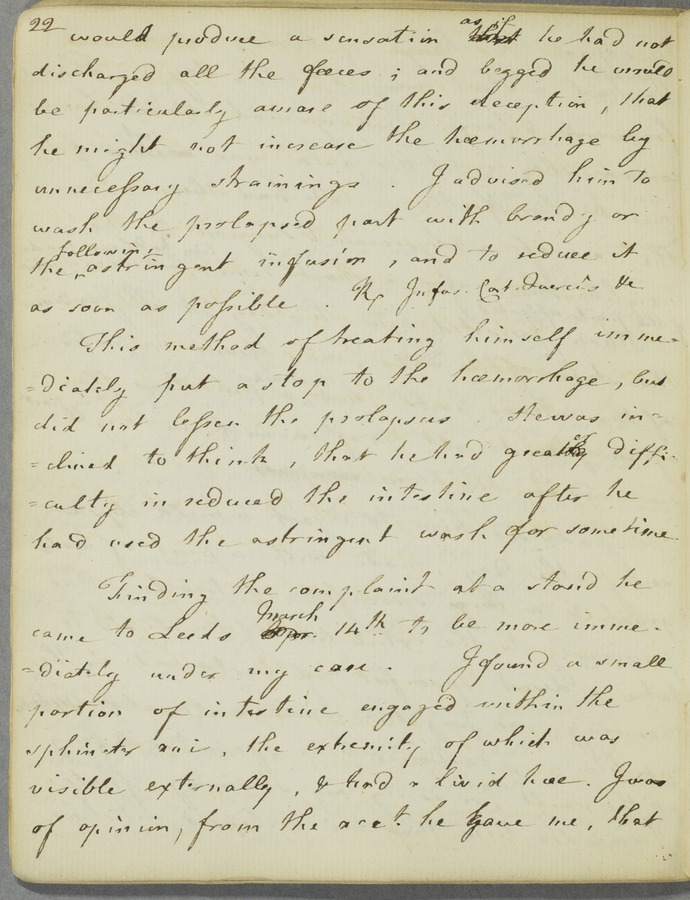 22
would produce a sensation as if he had not
discharged all the fæces ; and begged he would
be particularly aware of this deception , that
he might not increase the hæmorrhage by
unnecessary strainings . I advised him to
wash the prolapsed part with brandy or
the following astringent infusion , and to reduce it
as soon as possible . Rx Infus. Cort. Quercûs &c
This method of treating himself imme=
=diately put a stop to the hæmorrhage , but
did not lessen the prolapsus . He was in=
=clined to think , that he had greater diffi=
=culty in reduced the intestine after he
had used the astringent wash for sometime
Finding the complaint at a stand he
came to Leeds March 14th to be more imme=
=diately under my care . I found a small
portion of intestine engaged within the
sphincter ani , the extremity of which was
visible externally , & had a livid hue . I was
of opinion, from the acct. he gave me , that